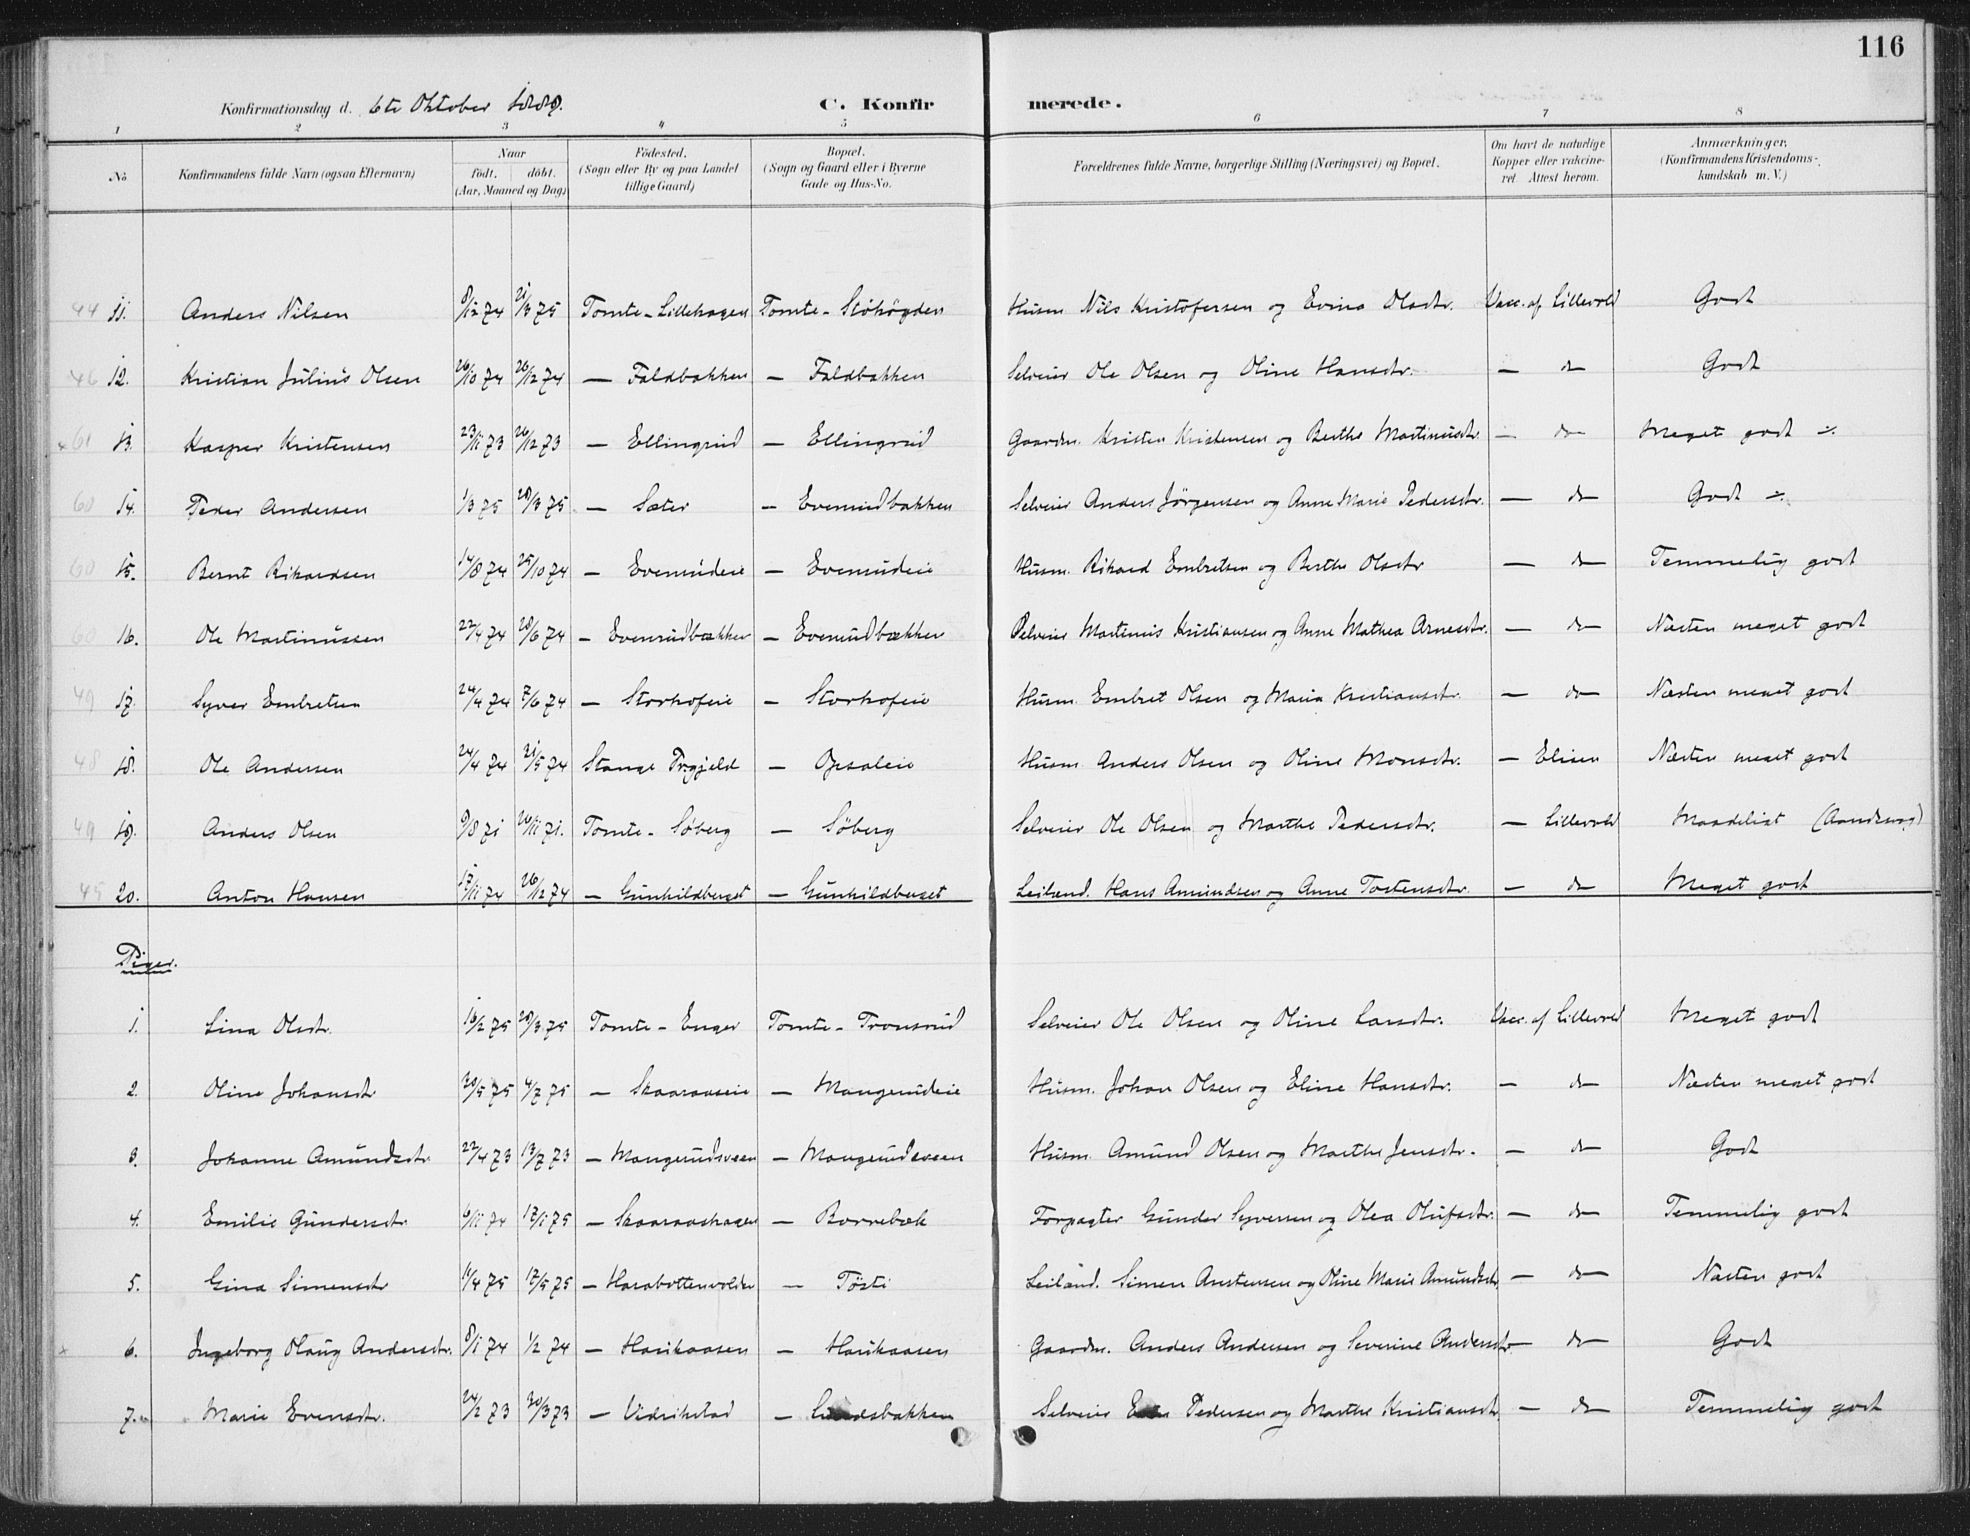 116
Konfirmationsdag d. 6te Oktober 1889. C. Konfirmerede.
1 2 3 4 5 6 7 8
No Konfirmandens fulde Navn (ogsaa Efternavn) Naar födt. döbt. (Aar, Maaned og Dag) Födested. (Sogn eller By og paa Landet tillige Gaard) Bopæl. (Sogn og Gaard eller i Byerne Gade og Hus-No. Forældrenes fulde Navne, borgerlige Stilling (Næringsvei) og Bopæl. Om havt de naturlige Kopper eller vakcineret. Attest herom. Anmærkninger. (Konfirmandens Kristendomskundskab m. V.)
44 11. Anders Nilsen 8/12 74 21/3 75 Tomte - Lillehagen Tomte - Stöhögden Husm. Nils Kristofersen og Evina Olsdtr. Vacc. af Lillevold Godt
46 12. Kristian Julius Olsen 26/10 74 26/12 74 — Faldbakken — Faldbakken Selveier Ole Olsen og Oline Hansdtr. — do Godt
61 13. Kasper Kristensen 23/11 73 26/12 73 — Ellingrud — Ellingrud Gaardm. Kristen Kristensen og Berthe Martinusdtr. — do Meget godt
60 14. Peder Andersen 1/3 75 28/3 75 — Sæter — Evenrudbakken Selveier Anders Jörgensen og Anne Marie Pedersdtr. — do Godt
60 15. Bernt Rikardsen 17/8 74 25/10 74 — Evenrudeie — Evenrudeie Husm. Rikard Embretsen og Berthe Olsdtr — do Temmelig godt
16. Ole Martinussen 22/4 74 28/6 74 — Evenrudbakken — Evenrudbakken Selveier Martinus Kristiansen og Anne Mathea Arnesdtr. — do Næsten meget godt
49 17. Syver Embretsen 24/4 74 7/6 74 — Storhofeie — Storhofeie Husm. Embret Olsen og Maria Kristiansdtr. — do Næsten meget godt
48 18. Ole Andersen 24/4 74 21/5 74 Stange Prgjeld — Opsaleie Husm. Anders Olsen og Oline Monsdtr. — Elisen Næsten meget godt
49 19. Anders Olsen 9/8 71 26/11 71. Tomte - Söberg — Söberg Selveier Ole Olsen og Marthe Pedersdtr. — Lillevold Maadeligt (Aandssvag)
45 20. Anton Hansen 17/11 74 26/12 74 — Gunhildberget — Gunhildberget Leilænd. Hans Amundsen og Anne Tostensdtr. — do Meget godt
Piger.
1. Lina Olsdtr. 16/2 75 28/3 75 Tomte - Enger Tomte - Tronsrud Selveier Ole Olsen og Oline Larsdtr. Vacc. af Lillevold Meget godt
2. Oline Johansdtr 30/5 75 4/7 75 — Skaaraaseie — Mangerudeie Husm. Johan Olsen og Eline Hansdtr. — do Næsten meget godt
3. Johanne Amundsdtr. 22/4 73 13/7 73 — Mangerudsveen — Mangerudsveen Husm. Amund Olsen og Marthe Jensdtr. — do Godt
4. Emilie Gundersdtr 6/11 74 17/1 75 — Skaaraashagen — Borrebæk Forpagter Gunder Syversen og Olea Olufsdtr. — do Temmelig godt
5. Gina Simensdtr 11/4 75 17/5 75 — Harabottenvolden — Tösti Leilænd. Simen Arstensen og Oline Marie Amundsdtr. — do Næsten godt
6. Ingeborg Olaug Andersdtr. 8/1 74 1/2 74 — Harikaasen — Harikaasen Gaardm. Anders Andersen og Severine Andersdtr — do Godt
7. Marie Evensdtr. 24/2 73 30/3 73 — Vidrikstad — Lundsbakken Selveier Even Pedersen og Marthe Kristiansdtr. — do Temmelig godt